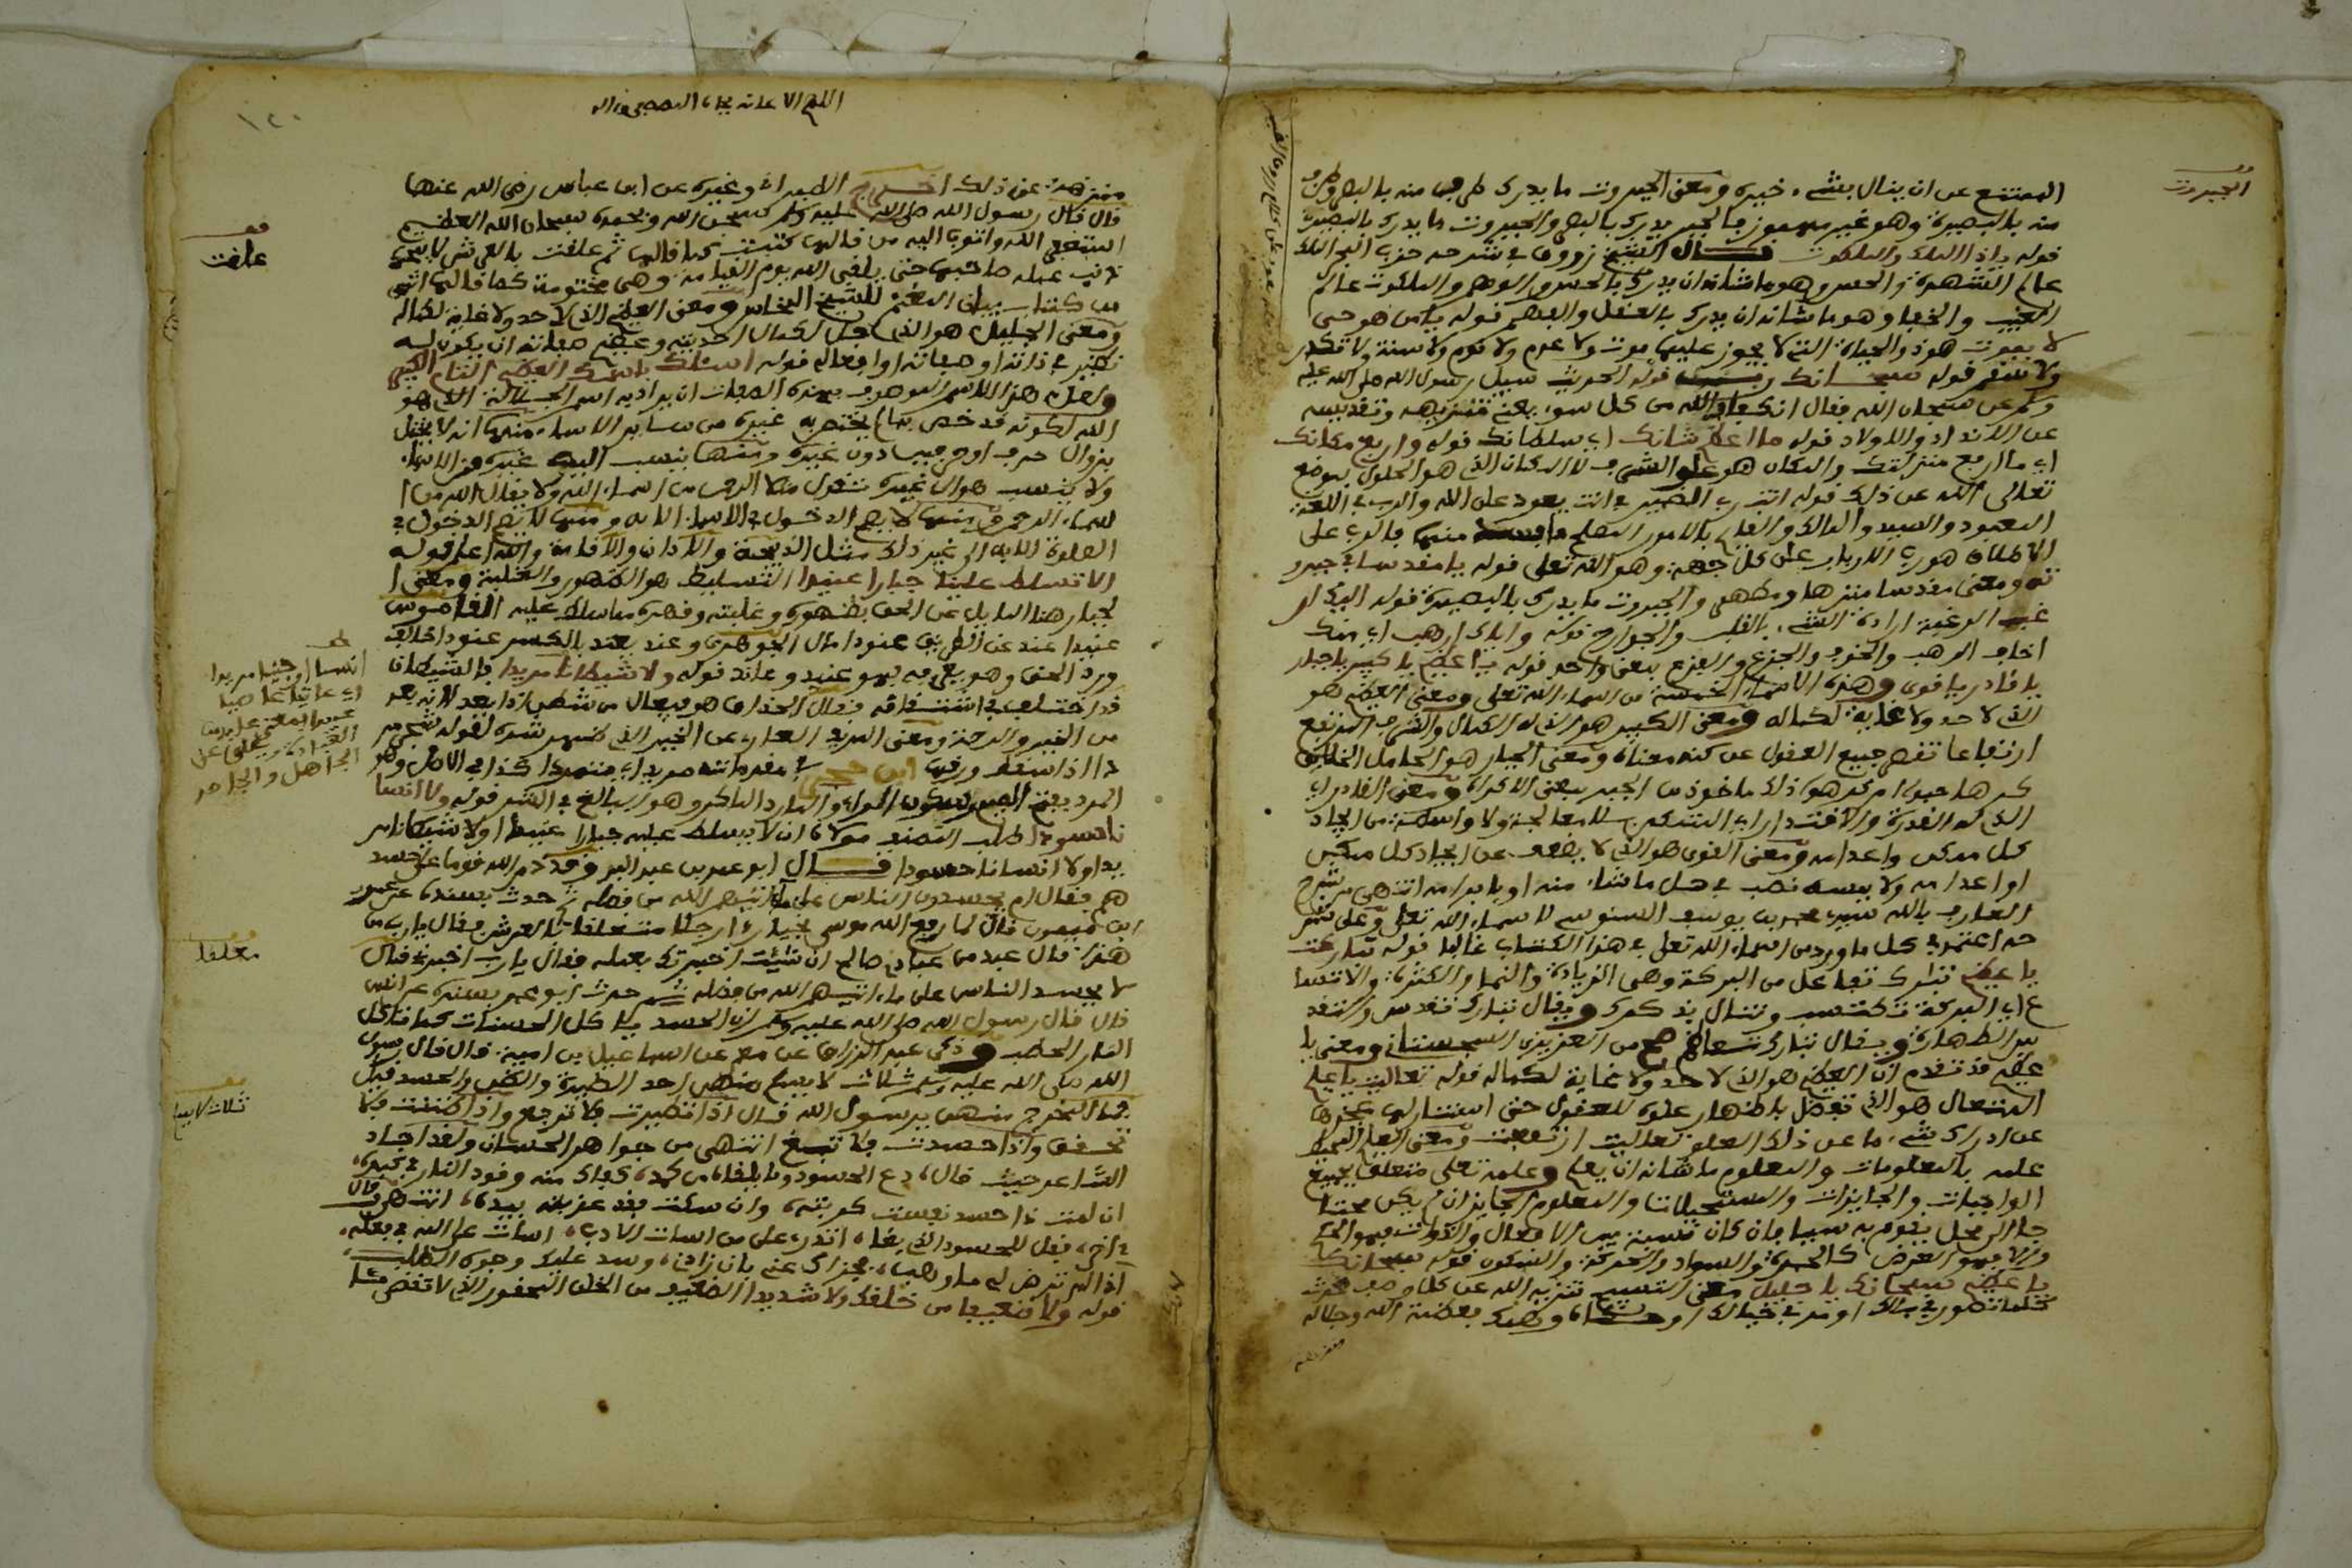 الجبروت
الممتنع عن ان ينال بشيء ومعنى الجبروت ما يدرك منه بالبصر
منه بالبصيرة وهو غير مهموز يدرك بالبصر والجبروت ما يدرك بالبصيرة
قوله يا ذا الملك والملكوت قال الشيخ زروق في شرحه حزب البحر الملك
عالم الشهادة والحس وهو ما شانه ان يدرك بالحس والوهم والملكوت عالم
الغيب والخفا وهو ما شانه ان يدرك بالعقل والفهم قوله يا من هو حي
لا يموت هو ذو الحياة التي لا يجوز عليها موت ولا عدم ولا نوم ولا سنة ولا
قوله سبحانك رب قوله الحديث سيل رسول الله صلى الله عليه
وسلم عن سبحان الله فقال الله من كل سوء يعني تنزيهه وتقديسه
عن الانداد والاولاد قوله ما اعظم شانك اي سلطانك قوله وارفع مكانك
اي ما ارفع منزلتك والمكان هو علو الشرف لا المكان الذي هو الحلول بموضع
تعالى الله عن ذلك قوله انت ربي الضمير في انت يعود على الله والرب في اللغة
المعبود والسيد والمالك والقايم بالامور المصلح منها فالرب على
الاطلاق هو رب الارباب على كل جهة وهو الله تعالى قوله يا مقدسا في جبرو
ته ومعنى مقدسا منزها ومطهرا والجبروت ما يدرك بالبصيرة قوله اليك ار
غب الرغبة ارادة الشيء بالقلب والجوارح قوله واياك ارهب اي منك
اخاف الرهب والخوف والجزع والفزع بمعنى واحد قوله يا عظيم يا كبير يا جبار
يا قادر يا قوي وهذه الاسماء الخمسة من اسماء الله تعالى ومعنى العظيم هو
الذي لا حد ولا غاية لكماله ومعنى الكبير هو الذي له الكمال والشرف المرتفع
ارتفاعا تقصر جميع العقول عن كنه معناه ومعنى الجبار هو الحامل الخلايق
كرها حبوا ام كرهوا ذلك ماخوذ من الجبر بمعنى الاكراه ومعنى القادر اي
الذي له القدرة والاقتدار اي التمكن بلا معالجة ولا واسطة من ايجاد
كل ممكن واعدامه ومعنى القوي هو الذي لا يضعف عن ايجاد كل ممكن
او اعدامه ولا يمسه نصب في فعل ما شاء منه او بابرامه انتهى من شرح
العارف بالله سيدي محمد بن يوسف السنوسي لاسماء الله تعالى وعلى شر
حه اعتمد في كل ما ورد من اسماء الله تعالى في هذا الكتاب غالبا قوله تباركت
يا عظيم تبارك تفاعل من البركة وهي الزيادة والنما والكثرة والاتسا
ع اي البركة تكتسب وتنال بذكرك ويقال تبارك تقدس والقدس
الطهارة ويقال تبارك تعاظم صح من العزيزي السجستاني ومعنى يا
عظيم قد تقدم ان العظيم هو الذي لا حد ولا غاية لكماله قوله تعاليت يا عليم
المتعال هو الذي تفضل باظهار علوه للعقول حتى استنار لها عجزها
عن ادراك شيء ما عن ذلك العلو تعاليت ارتفعت ومعنى العليم المحيط
علمه بالمعلومات والمعلوم ما شانه ان يعلم وعلمه تعالى متعلق بجميع
الواجبات والجايزات والمستحيلات والمعلوم الجايز ان لم يكن محتا
جا الى محل يقوم به
والا فهو العرض كالحمرة والسواد والحركة والسكون قوله سبحانك
يا عظيم سبحانك يا جليل معنى التسبيح تنزيه الله عن كل وصف محدث
كلما تصور في بالك او في خيالك او وصفك بعظمة الله وجلاله
منزه
اللهم
١٢٠
منزهة عن ذلك اخرج الطبراني وغيره عن ابن عباس رضي الله عنهما
قال قال رسول الله صلى الله عليه وسلم سبحن الله وبحمده سبحان الله العظيم
استغفر الله واتوب اليه من قالها كتبت كما قالها ثم علقت بالعرش لا يمحوها
ذنب عمله صاحبها حتى يلقى الله يوم القيامة وهي مختومة كما قالها انتهى
من كتاب ومعنى العظيم الذي لا حد ولا غاية لكماله
ومعنى الجليل هو الذي جل لكمال احديته وعظيم صفاته ان يكون له
نظير في ذاته او صفاته او افعاله قوله اسئلك باسمك العظيم التام الكبير
ولعل هذا الاسم الموصوف بهذه الصفات ان يراد به اسم الجلالة الذي هو
الله لكونه قد خص بما يختص به غيره من ساير الاسماء منها انه لا يختل
بزوال حرف او حرفين دون غيره ومنها ينسب اليه غيره من الاسماء
ولا ينسب هو الى غيره تقول مثلا الرحمن من اسماء الله ولا يقال الله من ا
سماء الرحمن ومنها لا يصح الدخول في الاسلام الا به ومنها لا يصح الدخول في
الصلوة الا به الى غير ذلك مثل الذبيحة والاذان والاقامة والله اعلم قوله
الا تسلط علينا جبارا عنيدا التسليط هو القهر والغلبة ومعنى ا
لجبار هنا المايل عن الحق بظهوره وغلبته وقهره القاموس
عنيدا عند عن الطريق عنودا مال الجوهري وعند يعند بالكسر عنودا خالف
ورد الحق وهو يعرفه فهو عنيد وعاند قوله ولا شيطانا مريدا فالشيطان
قد اختلف في اشتقاقه فقال الحذاق هو فيعال من شطن اذا بعد لانه بعد
من الخير والرحمة ومعنى المريد العاري عن الخير الذي ظهر شره لقوله شجرة مر
دا اذا سقط ورقها ابن حجر في مقدمته مريدا اي متمردا كذا في الاصل وهو
قوله ولا انسا
نا حسودا طلب المصنف مولاه ان لا يسلط عليه جبارا عنيدا ولا شيطانا مر
يدا ولا انسانا حسودا قال ابو عمر بن عبد البر وقد ذم الله قوما على حسد
هم فقال ام يحسدون الناس على ما اتيهم الله من فضله ثم حدث بسنده عن عمرو
ابن ميمون قال لما رفع الله موسى نجيا رءا رجلا متعلقا بالعرش فقال يا رب من
هذا قال عبد من عبادي صالح ان شئت اخبرتك بعمله فقال يا رب اخبرني قال
لا يحسد الناس على ما اتيهم الله من فضله ثم حدث ابو عمر بسنده عن انس
قال قال رسول الله صلى الله عليه وسلم ان الحسد ياكل الحسنات كما تاكل
النار الحطب وذكر عبد الرزاق عن معمر عن اسماعيل بن امية قال قال رسول
الله صلى الله عليه وسلم ثلاث لا يسلم منهن احد الطيرة والظن والحسد قيل
فما المخرج منهن يا رسول الله قال اذا تطيرت فلا ترجع واذا ظننت فلا
تحقق واذا حسدت فلا تبغ انتهى من جواهر الحسان ولقد اجاد
الشاعر حيث قال دع الحسود وما يلقاه من كمده كفاك منه وقود النار في كبده
ان لمت ذا حسد نفست كربته وان سكت فقد عذبته بيده انتهى وقال
ءاخر فقل للحسود اتدري على من اسات الادب اسات على الله في فعله
اذ انت لم ترض لي ما وهب فجزاك عنه بان زادني وسد عليك وجوه الطلب
قوله ولا ضعيفا من خلقك ولا شديدا الضعيف من الخلق المحقور الذي
علقت
انسيا او جنيا مريدا
اي عاتيا عاصيا
الجاهل والجاحد
معلقا
ثلاث لا يسلم